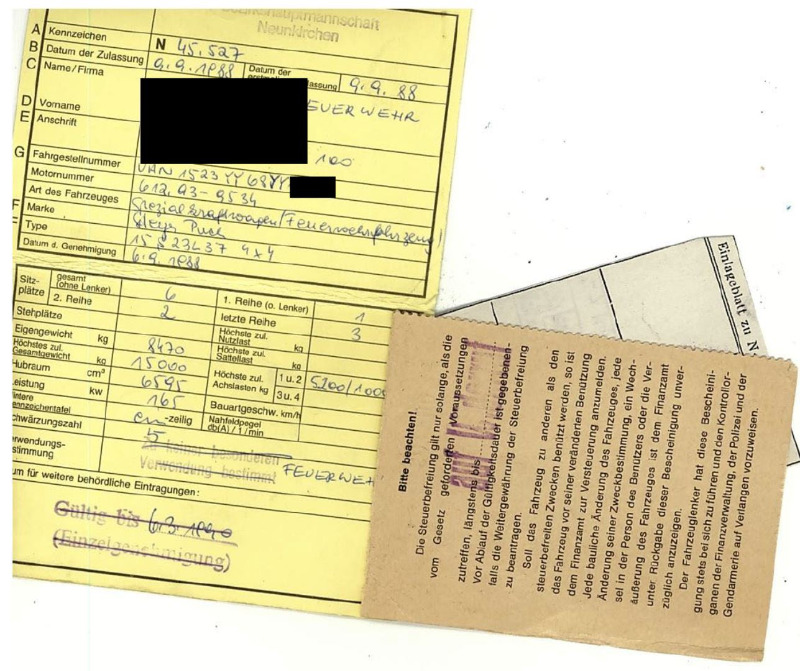 Bezirkshauptmannschaft
Neunkirchen
A Kennzeichen N 45.527
B Datum der Zulassung 9.9.1988 Datum der
C lassung 9.9.88
Name/Firma
FEUERWEHR
D Vorname
E Anschrift
100
G Fahrgestellnummer VAN 1523 YY 68YY
Motornummer 612.93-9534
Art des Fahrzeuges Spezialkraftwagen/Feuerwehrfahrzeug/
F Marke Steyr Puch
Type 15 S 23L37 4x4
Datum d. Genehmigung 6.9.1988
Sitz-
plätze
gesamt
(ohne Lenker) 6 1. Reihe (o. Lenker) 1
2. Reihe 2 letzte Reihe 3
Stehplätze
Höchste zul.
Nutzlast kg
Eigengewicht kg 8470
Höchste zul.
Sattellast kg
Höchstes zul.
Gesamtgewicht kg 15000
Höchste zul.
Achslasten kg 1 u. 2 5200/1000
3 u. 4
Hubraum cm³ 6595
eistung kw 165 Bauartgeschw. km/h
intere
ennzeichentafel -zeilig
Nahfeldpegel
db(A) / 1 / min
chwärzungszahl 5
rwendungs-
stimmung
zu keiner besonderen
Verwendung bestimmt FEUERWEH
um für weitere behördliche Eintragungen:
Gültig bis 6.3.1990
(Einzelgenehmigung)
Einlageblatt zu N
Bitte beachten!
Die Steuerbefreiung gilt nur solange, als die
vom Gesetz geforderten Voraussetzungen
zutreffen, längstens bis
vor Ablauf der Gültigkeitsdauer ist gegebenen-
falls die Weitergewährung der Steuerbefreiung
zu beantragen.
Soll das Fahrzeug zu anderen als den
steuerbefreiten Zwecken benützt werden, so ist
das Fahrzeug vor seiner veränderten Benützung
dem Finanzamt zur Versteuerung anzumelden.
Jede bauliche Änderung des Fahrzeuges, jede
Änderung seiner Zweckbestimmung, ein Wech-
sel in der Person des Benutzers oder die Ver-
äußerung des Fahrzeuges ist dem Finanzamt
unter Rückgabe dieser Bescheinigung unver-
züglich anzuzeigen.
Der Fahrzeuglenker hat diese Bescheini-
gung stets bei sich zu führen und den Kontrollor-
ganen der Finanzverwaltung, der Polizei und der
Gendarmerie auf Verlangen vorzuweisen.